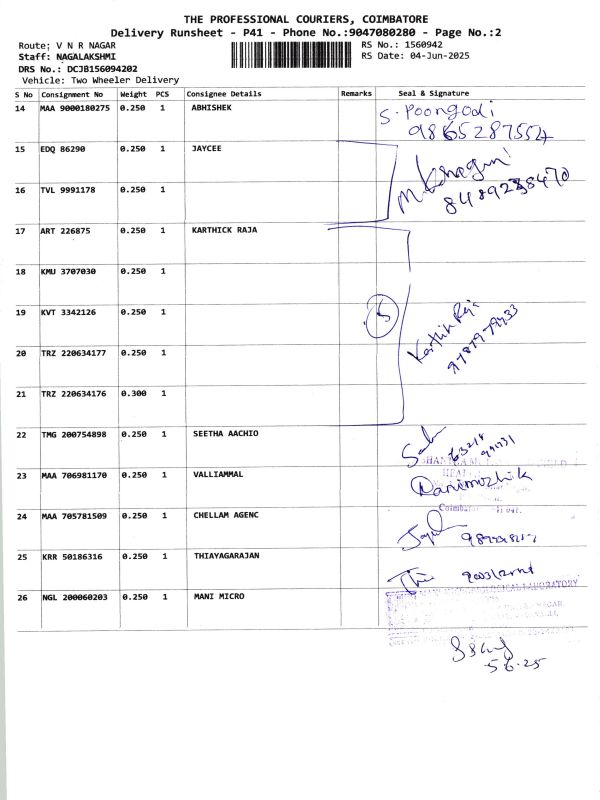 THE PROFESSIONAL COURIERS, COIMBATORE
Delivery Runsheet - P41 - Phone No.:9047080280 - Page No.:2
Route: V N R NAGAR RS No.: 1560942
Staff: NAGALAKSHMI RS Date: 04-Jun-2025
DRS No.: DCJB156094202
Vehicle: Two Wheeler Delivery
S No Consignment No Weight PCS Consignee Details Remarks Seal & Signature
14 MAA 9000180275 0.250 1 ABHISHEK S. Poongodi
9865287554
15 EDQ 86290 0.250 1 JAYCEE
16 TVL 9991178 0.250 1
17 ART 226875 0.250 1 KARTHICK RAJA
18 KMU 3707030 0.250 1
19 KVT 3342126 0.250 1 5 Karthik Raja
20 TRZ 220634177 0.250 1
21 TRZ 220634176 0.300 1
22 TMG 200754898 0.250 1 SEETHA AACHIO
23 MAA 706981170 0.250 1 VALLIAMMAL
24 MAA 705781509 0.250 1 CHELLAM AGENC
25 KRR 50186316 0.250 1 THIAYAGARAJAN
26 NGL 200060203 0.250 1 MANI MICRO
5.6.25